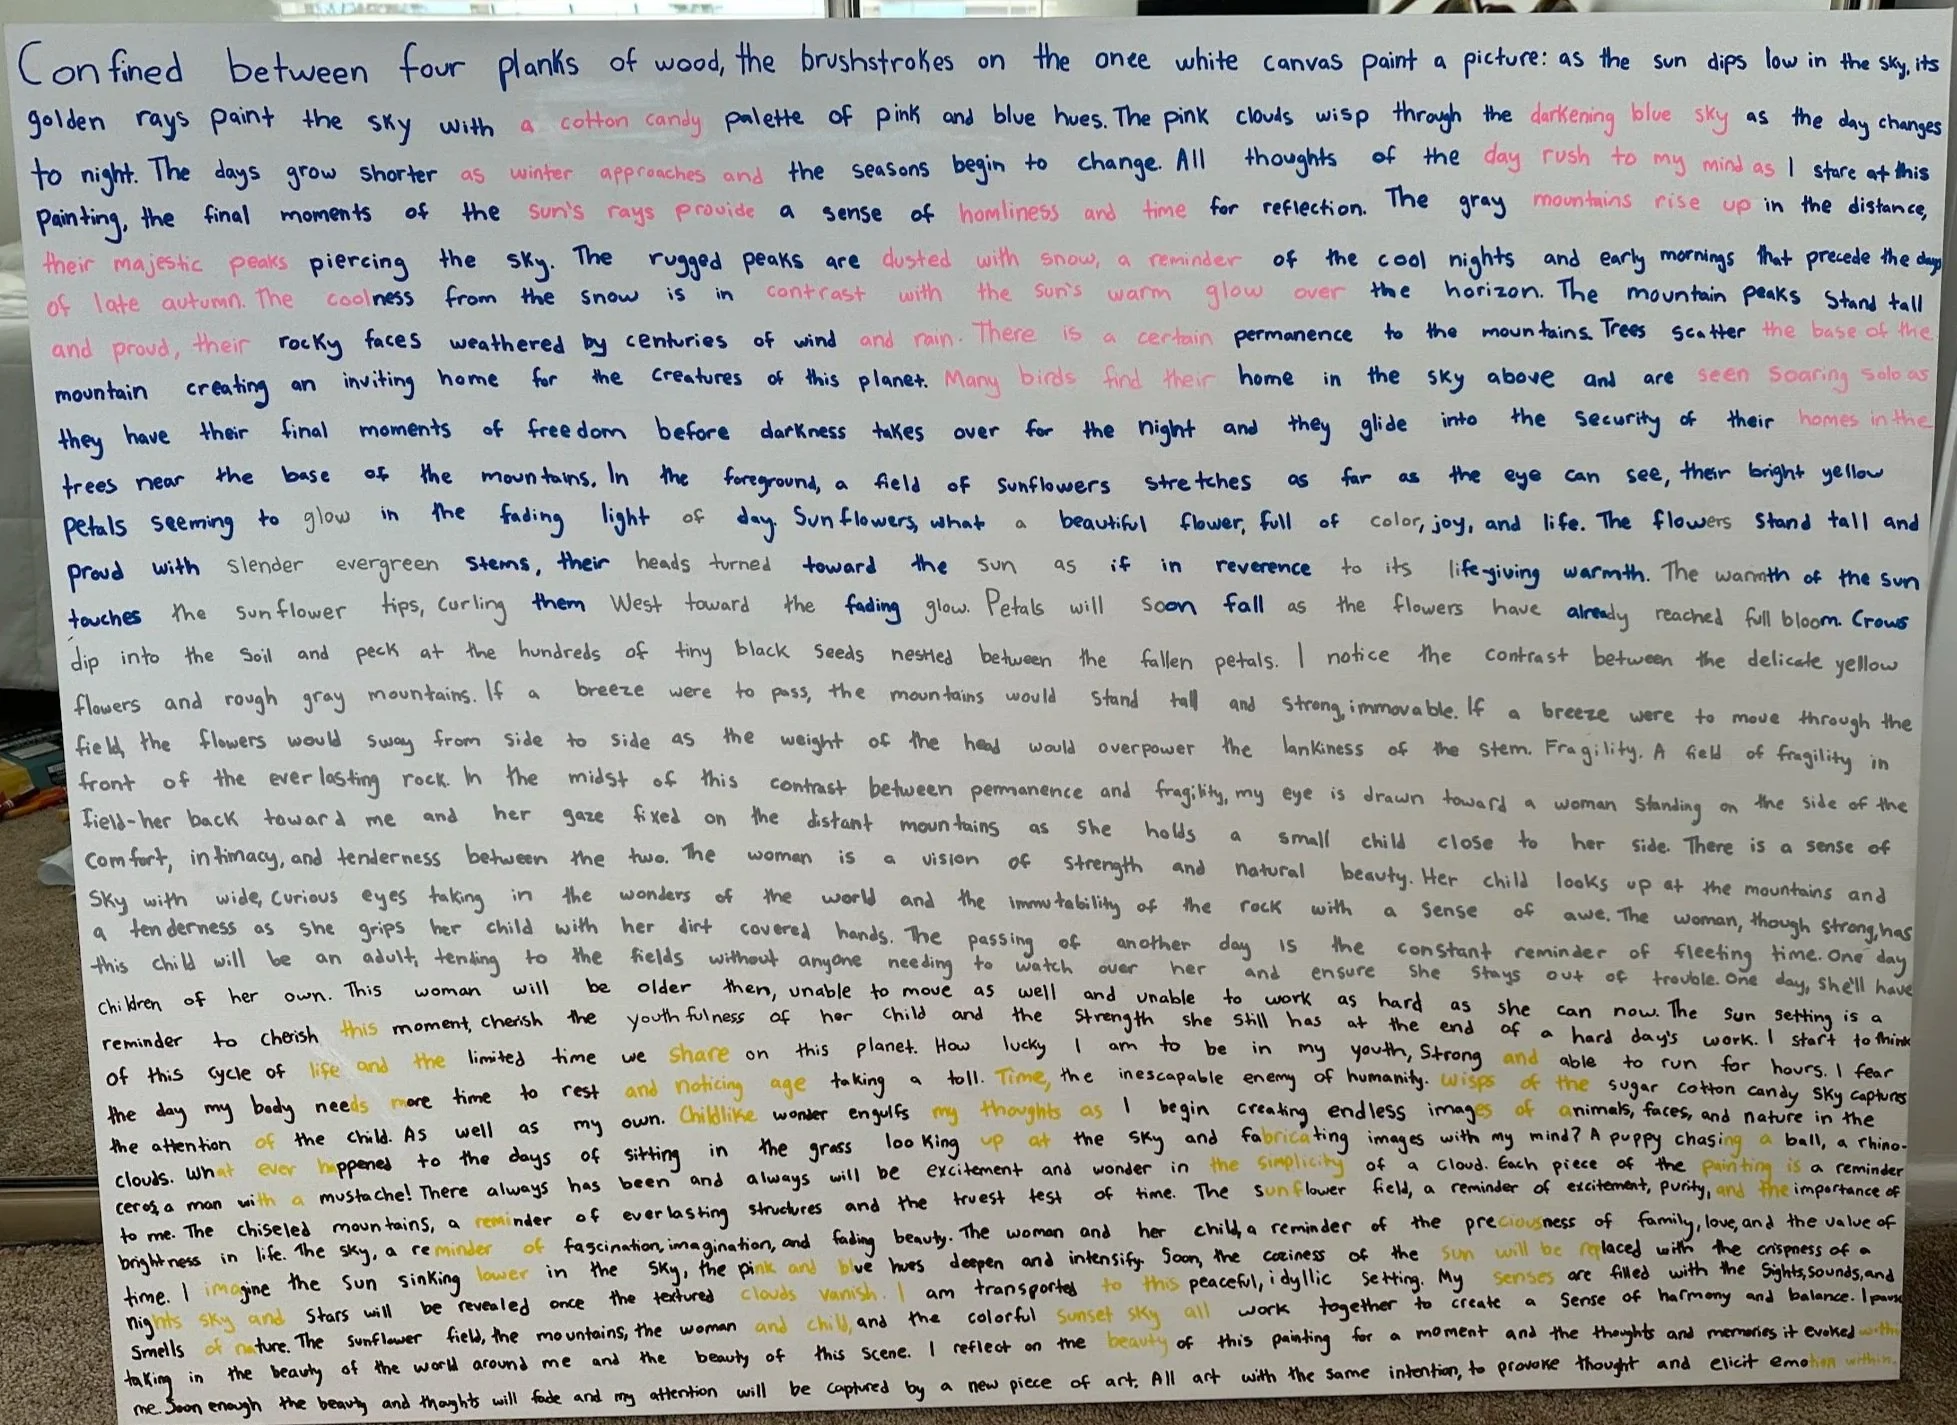 Confined between four planks of wood, the brushstrokes on the once white canvas paint a picture: as the sun dips low in the sky, its
golden rays paint the sky with a cotton candy palette of pink and blue hues. The pink clouds wisp through the darkening blue sky as the day changes
to night. The days grow shorter as winter approaches and the seasons begin to change. All thoughts of the day rush to my mind as I stare at this
painting, the final moments of the sun's rays provide a sense of homliness and time for reflection. The gray mountains rise up in the distance,
their majestic peaks piercing the sky. The rugged peaks are dusted with snow, a reminder of the cool nights and early mornings that precede the days
of late autumn. The coolness from the snow is in contrast with the sun's warm glow over the horizon. The mountain peaks stand tall
and proud, their rocky faces weathered by centuries of wind and rain. There is a certain permanence to the mountains. Trees scatter the base of the
mountain creating an inviting home for the creatures of this planet. Many birds find their home in the sky above and are seen soaring solo as
they have their final moments of freedom before darkness takes over for the night and they glide into the security of their homes in the
trees near the base of the mountains. In the foreground, a field of sunflowers stretches as far as the eye can see, their bright yellow
petals seeming to glow in the fading light of day. Sunflowers, what a beautiful flower, full of color, joy, and life. The flowers stand tall and
proud with slender evergreen stems, their heads turned toward the sun as if in reverence to its life-giving warmth. The warmth of the sun
touches the sunflower tips, curling them West toward the fading glow. Petals will soon fall as the flowers have already reached full bloom. Crows
dip into the soil and peck at the hundreds of tiny black seeds nestled between the fallen petals. I notice the contrast between the delicate yellow
flowers and rough gray mountains. If a breeze were to pass, the mountains would stand tall and strong, immovable. If a breeze were to move through the
field, the flowers would sway from side to side as the weight of the head would overpower the lankiness of the stem. Fragility. A field of fragility in
front of the everlasting rock. In the midst of this contrast between permanence and fragility, my eye is drawn toward a woman standing on the side of the
field-her back toward me and her gaze fixed on the distant mountains as she holds a small child close to her side. There is a sense of
comfort, intimacy, and tenderness between the two. The woman is a vision of strength and natural beauty. Her child looks up at the mountains and
sky with wide, curious eyes taking in the wonders of the world and the immutability of the rock with a sense of awe. The woman, though strong, has
a tenderness as she grips her child with her dirt covered hands. The passing of another day is the constant reminder of fleeting time. One day
this child will be an adult, tending to the fields without anyone needing to watch over her and ensure she stays out of trouble. One day, she'll have
children of her own. This woman will be older then, unable to move as well and unable to work as hard as she can now. The sun setting is a
reminder to cherish this moment, cherish the youthfulness of her child and the strength she still has at the end of a hard day's work. I start to think
of this cycle of life and the limited time we share on this planet. How lucky I am to be in my youth, strong and able to run for hours. I fear
the day my body needs more time to rest and noticing age taking a toll. Time, the inescapable enemy of humanity. Wisps of the sugar cotton candy sky captures
the attention of the child. As well as my own. Childlike wonder engulfs my thoughts as I begin creating endless images of animals, faces, and nature in the
clouds. What ever happened to the days of sitting in the grass looking up at the sky and fabricating images with my mind? A puppy chasing a ball, a rhino-
ceros, a man with a mustache! There always has been and always will be excitement and wonder in the simplicity of a cloud. Each piece of the painting is a reminder
to me. The chiseled mountains, a reminder of everlasting structures and the truest test of time. The sunflower field, a reminder of excitement, purity, and the importance of
brightness in life. The sky, a reminder of fascination, imagination, and fading beauty. The woman and her child, a reminder of the preciousness of family, love, and the value of
time. I imagine the sun sinking lower in the sky, the pink and blue hues deepen and intensify. Soon, the coziness of the sun will be replaced with the crispness of a
nights sky and stars will be revealed once the textured clouds vanish. I am transported to this peaceful, idyllic setting. My senses are filled with the sights, sounds, and
smells of nature. The sunflower field, the mountains, the woman and child, and the colorful sunset sky all work together to create a sense of harmony and balance. I pause
taking in the beauty of the world around me and the beauty of this scene. I reflect on the beauty of this painting for a moment and the thoughts and memories it evoked within
me. Soon enough the beauty and thoughts will fade and my attention will be captured by a new piece of art. All art with the same intention, to provoke thought and elicit emotion within.